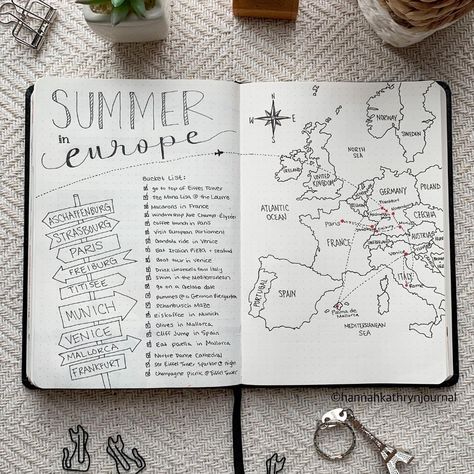 SUMMER
in
europe
ASCHAFFENBURG
STRASBOURG
PARIS
FREIBURG
TITISEE
MUNICH
VENICE
MALLORCA
FRANKFURT
Bucket List:
go to top of Eiffel Tower
The Mona Lisa @ the Louvre
Macarons in France
Window shop Ave Champs-Élysées
coffee brunch in Paris
Visit European Parliament
Gondola ride in Venice
Eat Italian Pizza + seafood
Boat tour in Venice
Drink Limoncello from Italy
Swim in the Mediterranean
go on a gelato date
Summer @ a German Biergarten
Eiskaffee in Munich
Olives in Mallorca
Cliff Jump in Spain
Eat paella in Mallorca
Notre Dame Cathedral
See Eiffel Tower Sparkle @ night
Champagne picnic @ Eiffel Tower
NORWAY
SWEDEN
NORTH
SEA
IRELAND
UNITED
KINGDOM
GERMANY
POLAND
Frankfurt
ATLANTIC
OCEAN
Paris
CZECHIA
FRANCE
AUSTRIA
ITALY
PORTUGAL
SPAIN
Palma de
Mallorca
MEDITERRANEAN
SEA
©hannahkathrynjournal